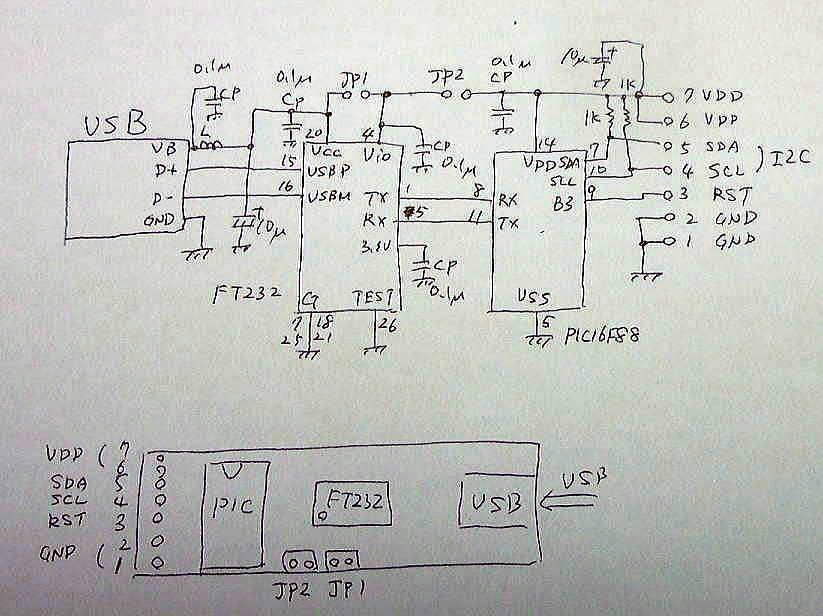 USB
VB
D+
D-
GND
0.1μ
CP
L
10μ
0.1μ
CP
JP1
20
4
VCC
Vio
15
USBP
16
USBM
TX
1
RX
5
3.3V
CP
0.1μ
CP
0.1μ
FT232
G
TEST
7 18
25 21
26
JP2
0.1μ
CP
14
VDD SDA
7
SCL
10
B3
9
8
RX
11
TX
VSS
5
PIC16F88
10μ
+
1K
1K
7 VDD
6 VDD
5 SDA
4 SCL
) I2C
3 RST
2 GND
1 GND
VDD ( 7
6
SDA 5
SCL 4
RST 3
GND ( 2
1
PIC
FT232
USB
USB
JP2 JP1